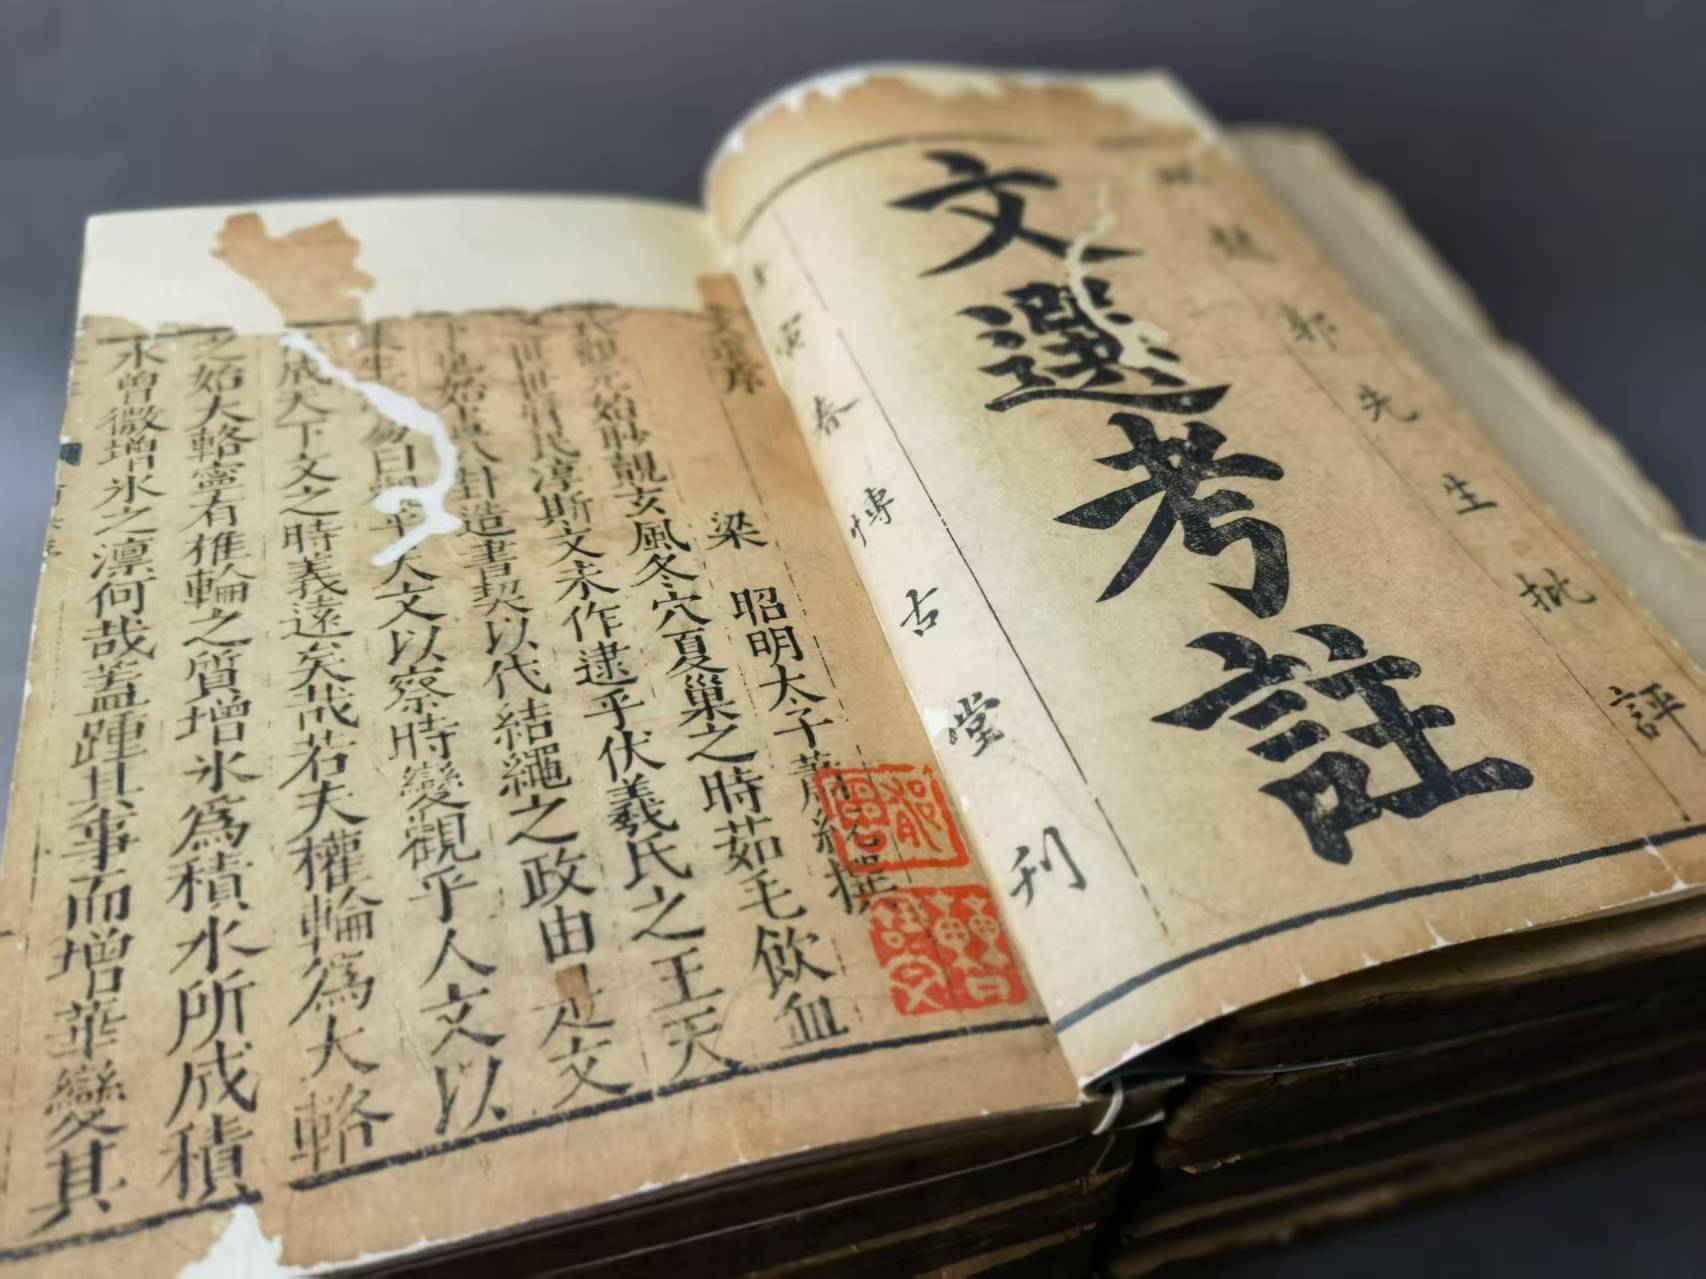 郭先生批評
文選考註
寅春博古堂刊
序
梁 昭明太子蕭統撰
式觀元始眇覿玄風冬穴夏巢之時茹毛飲血
之世世質民淳斯文未作逮乎伏羲氏之王天
下也始畫八卦造書契以代結繩之政由是文
生易曰觀乎天文以察時變觀乎人文以
成天下文之時義遠矣哉若夫權輪爲大輅
之始大輅寧有椎輪之質增氷爲積水所成積
水曾微增氷之凛何哉蓋踵其事而增華變其